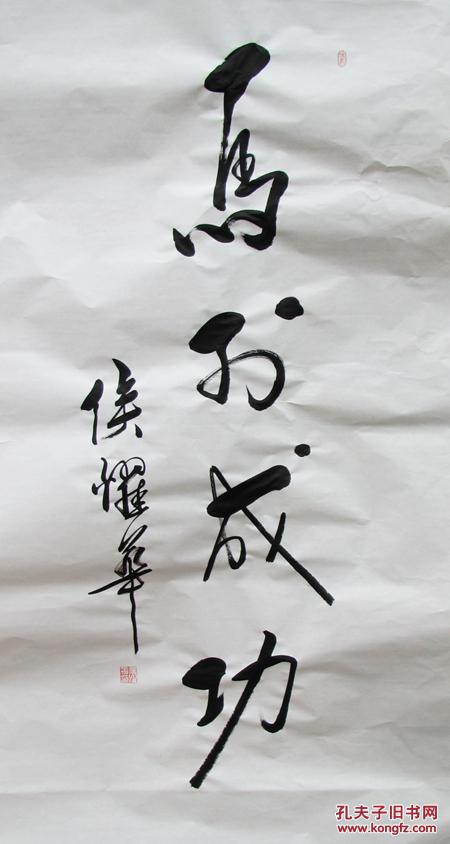 馬到成功
侯耀華
孔夫子旧书网
www.kongfz.com